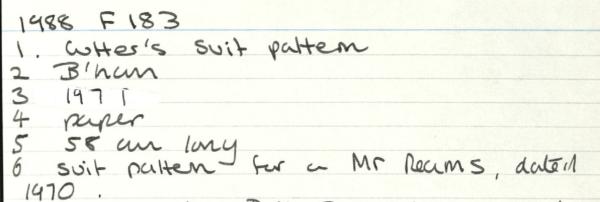 1988 F 183
1. Cutter's suit pattern
2 B'ham
3 1971
4 paper
5 58 cm long
6 suit pattern for a Mr Reams, dated
1970.